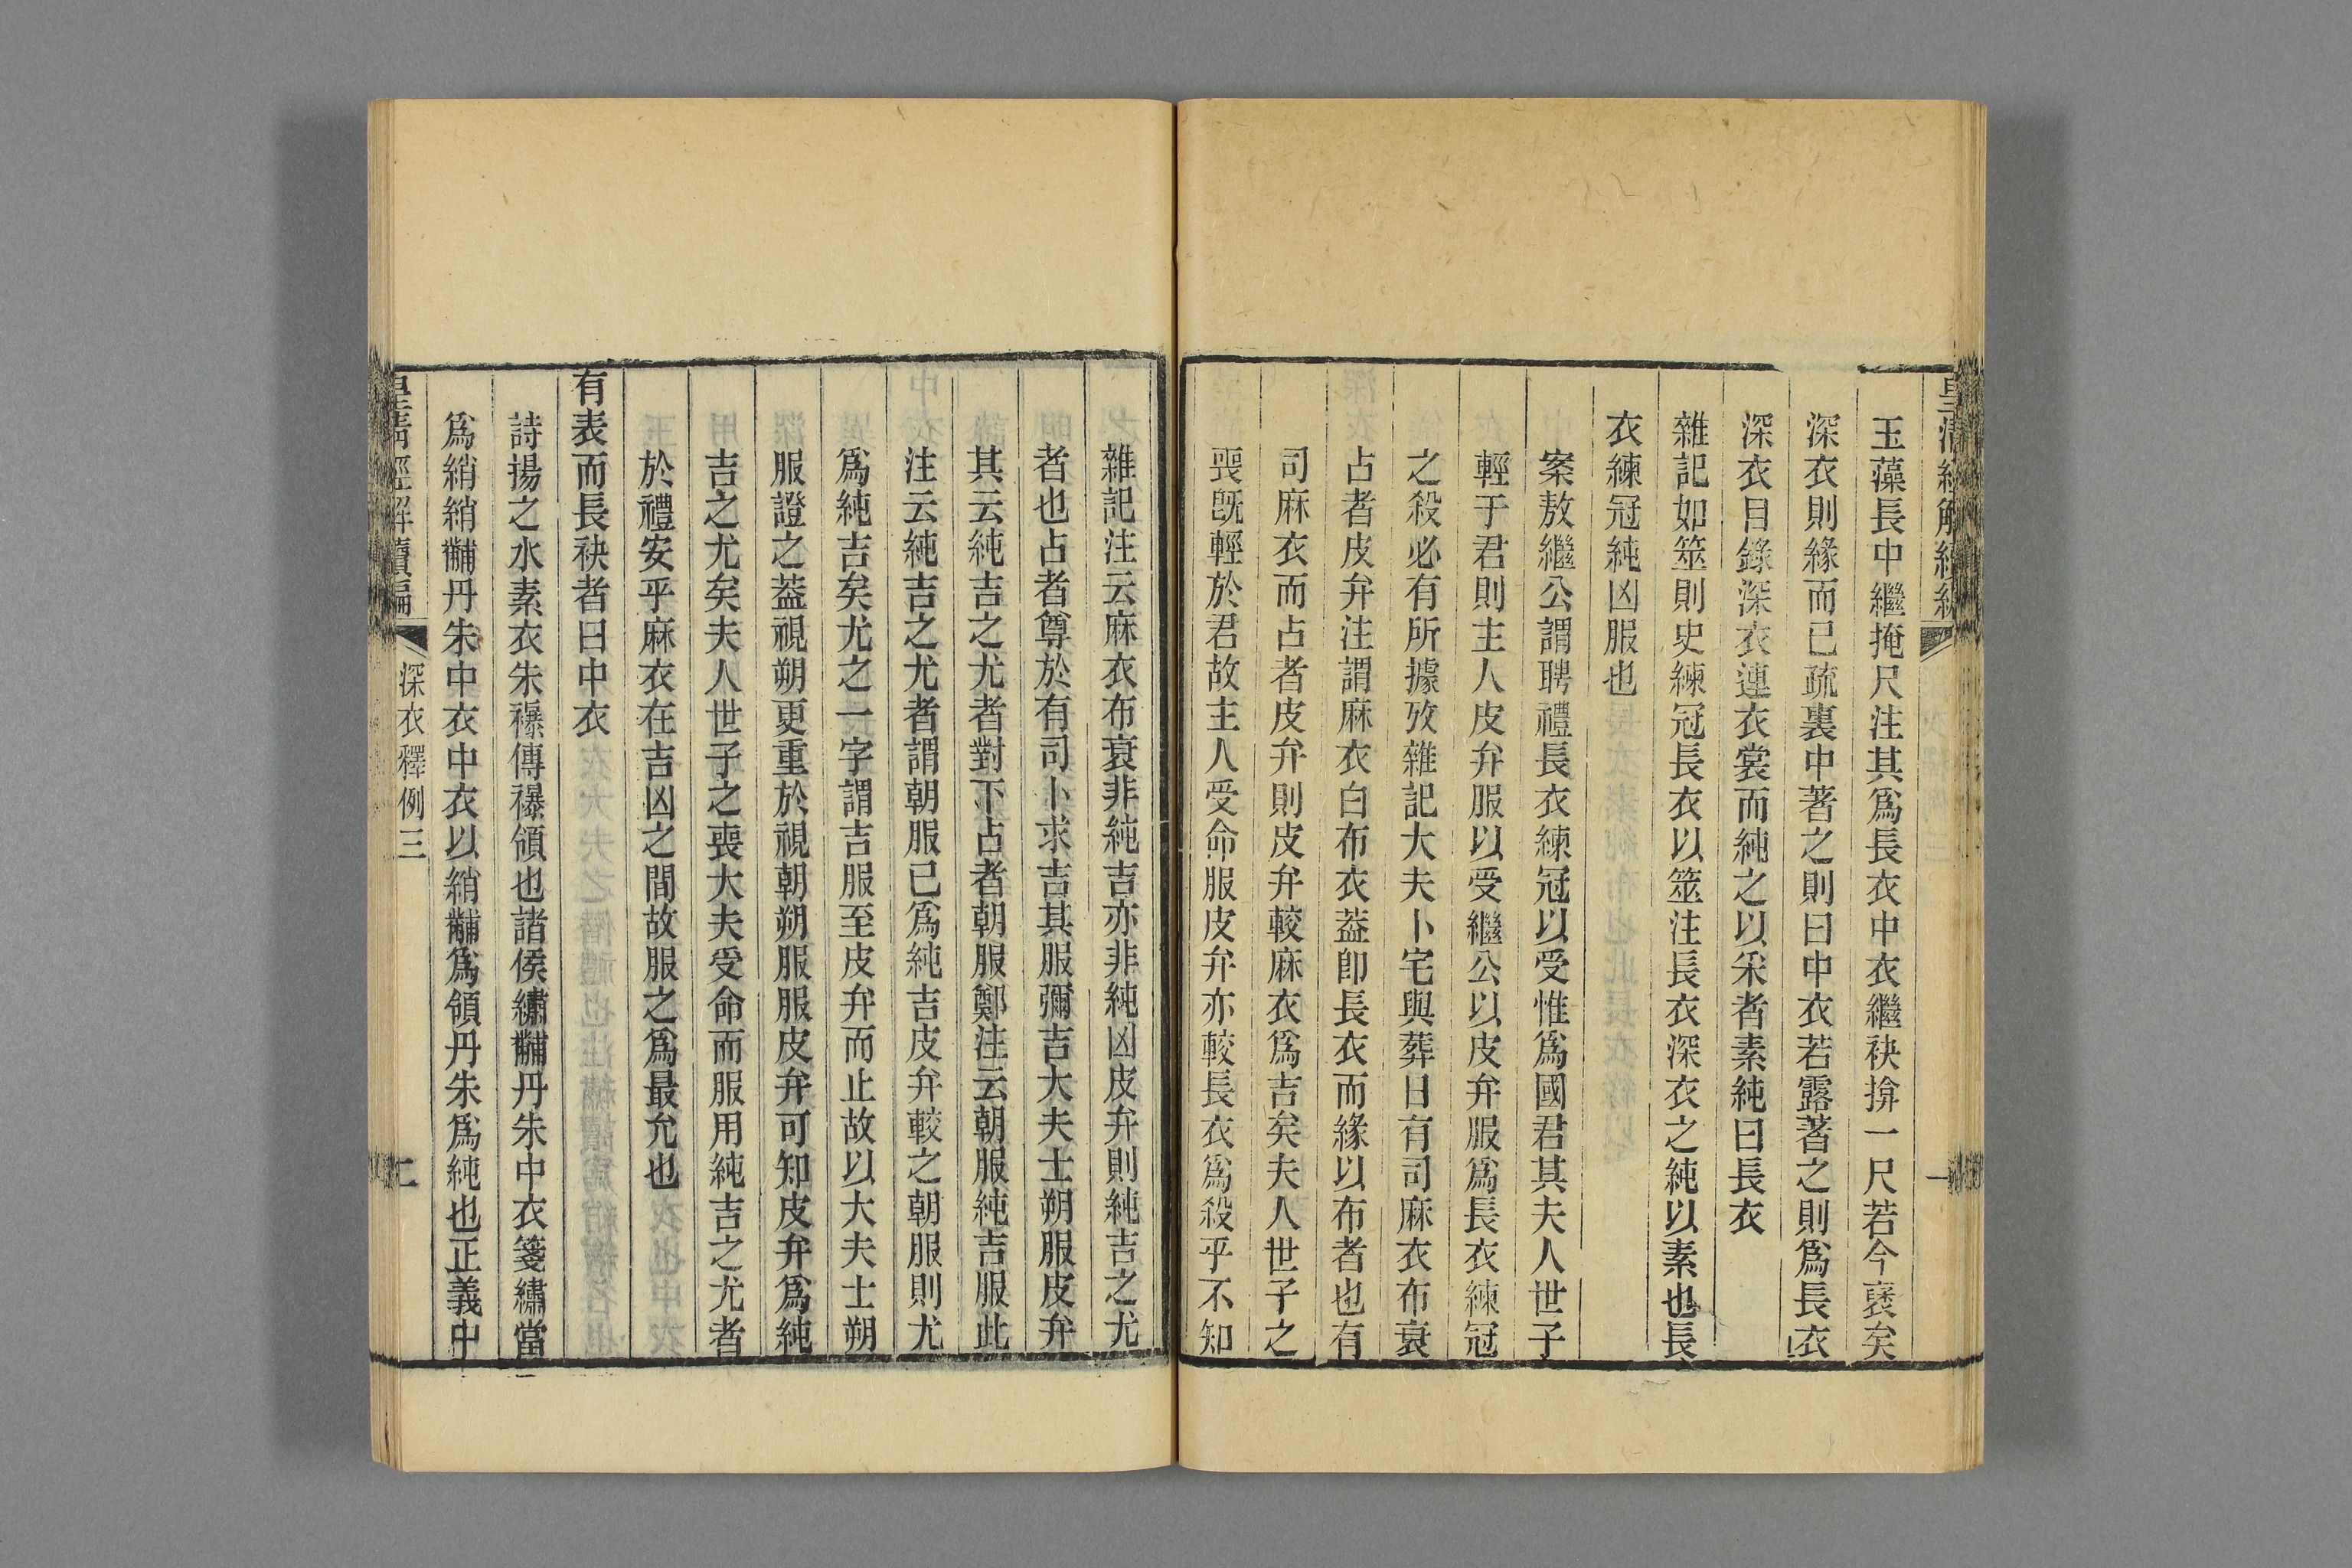 皇清經解續編
一
玉藻長中繼掩尺注其爲長衣中衣繼袂揜一尺若今褎矣
深衣則緣而已疏裏中著之則曰中衣若露著之則爲長衣
深衣目錄深衣連衣裳而純之以采者素純曰長衣
雜記如筮則史練冠長衣以筮注長衣深衣之純以素也長
衣練冠純凶服也
案敖繼公謂聘禮長衣練冠以受惟爲國君其夫人世子
輕于君則主人皮弁服以受繼公以皮弁服爲長衣練冠
之殺必有所據攷雜記大夫卜宅與葬日有司麻衣布衰
占者皮弁注謂麻衣白布衣葢卽長衣而緣以布者也有
司麻衣而占者皮弁則皮弁較麻衣爲吉矣夫人世子之
喪旣輕於君故主人受命服皮弁亦較長衣爲殺乎不知
雜記注云麻衣布衰非純吉亦非純凶皮弁則純吉之尤
者也占者尊於有司卜求吉其服彌吉大夫士朔服皮弁
其云純吉之尤者對下占者朝服鄭注云朝服純吉服此
注云純吉之尤者謂朝服已爲純吉皮弁較之朝服則尤
爲純吉矣尤之一字謂吉服至皮弁而止故以大夫士朔
服證之葢視朔更重於視朝朔服服皮弁可知皮弁爲純
吉之尤矣夫人世子之喪大夫受命而服用純吉之尤者
於禮安乎麻衣在吉凶之間故服之爲最允也
有表而長袂者曰中衣
詩揚之水素衣朱襮傳襮領也諸侯繡黼丹朱中衣箋繡當
爲綃綃黼丹朱中衣中衣以綃黼爲領丹朱爲純也正義中
皇清經解續編
深衣釋例三
二